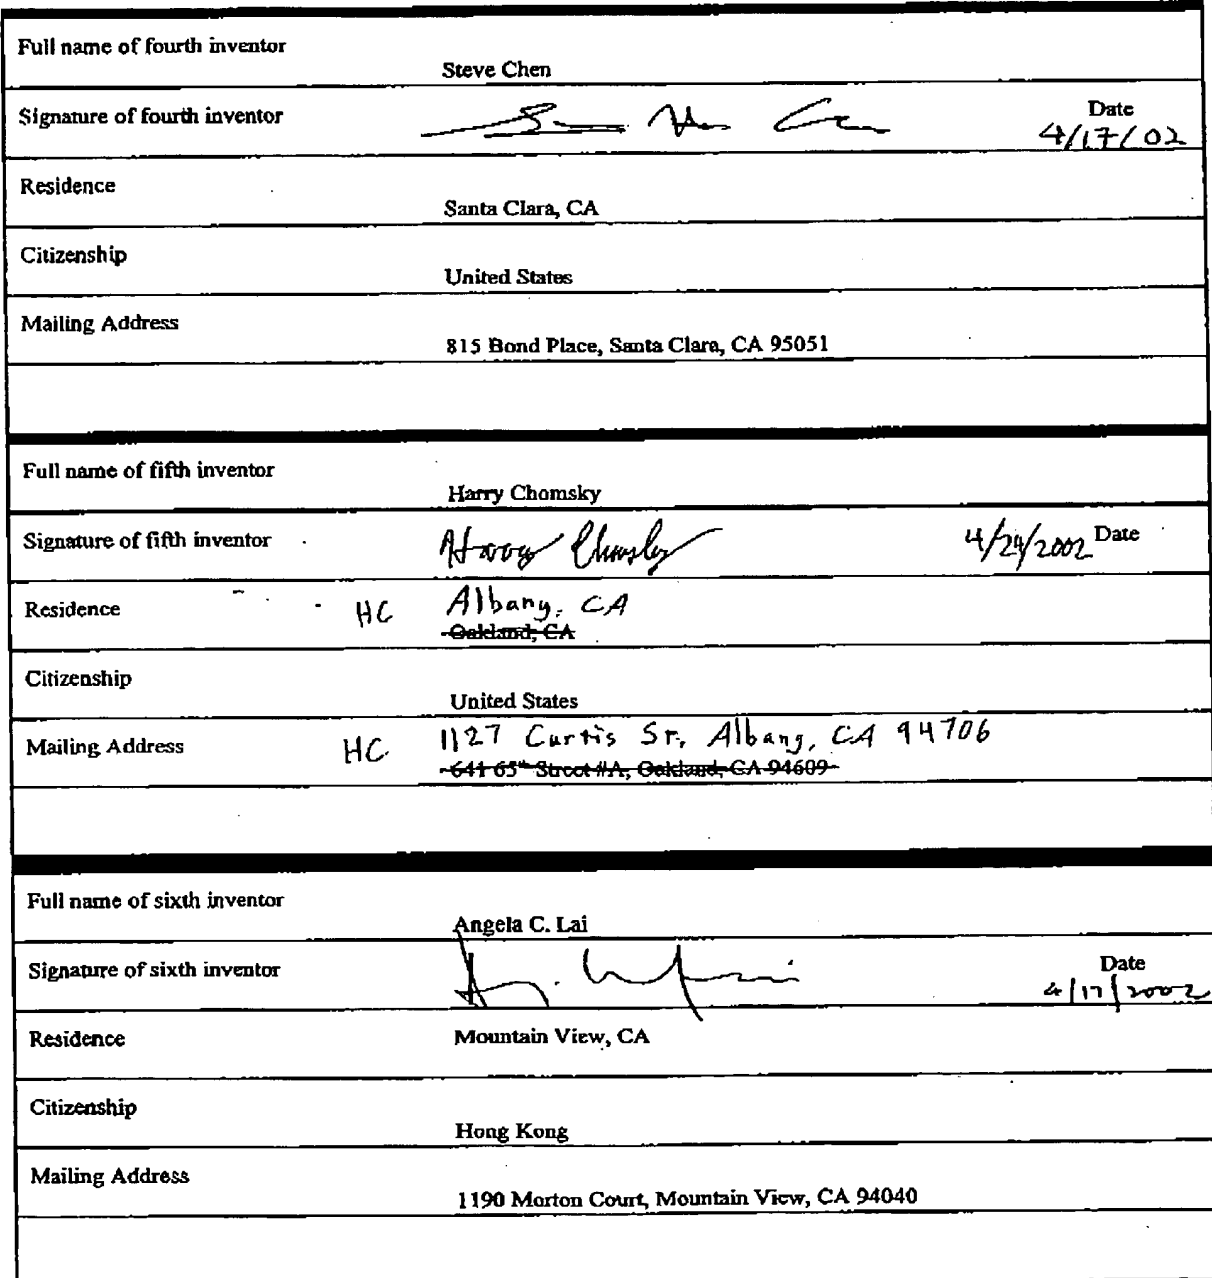 Full name of fourth inventor
Steve Chen
Signature of fourth inventor
Date
4/17/02
Residence
Santa Clara, CA
Citizenship
United States
Mailing Address
815 Bond Place, Santa Clara, CA 95051
Full name of fifth inventor
Harry Chomsky
Signature of fifth inventor Harry Chomsky 4/24/2002 Date
Residence HC Albany, CA
Oakland, CA
Citizenship
United States
Mailing Address HC 1127 Curtis St, Albany, CA 94706
641 65th Street #A, Oakland, CA 94609
Full name of sixth inventor
Angela C. Lai
Signature of sixth inventor
Date
4/17/2002
Residence Mountain View, CA
Citizenship
Hong Kong
Mailing Address
1190 Morton Court, Mountain View, CA 94040